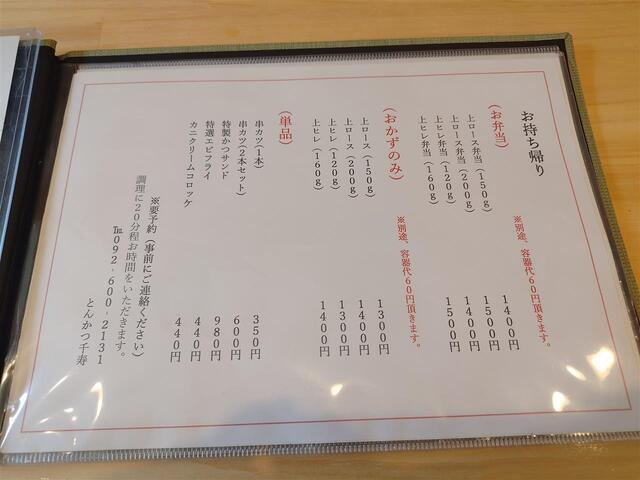 お持ち帰り
(お弁当) ※別途、容器代60円頂きます。
上ロース弁当(150g) 1400円
上ロース弁当(200g) 1500円
上ヒレ弁当(120g) 1400円
上ヒレ弁当(160g) 1500円
(おかずのみ) ※別途、容器代60円頂きます。
上ロース(150g) 1300円
上ロース(200g) 1400円
上ヒレ(120g) 1300円
上ヒレ(160g) 1400円
(単品)
串カツ(1本) 350円
串カツ(2本セット) 600円
特製かつサンド 980円
特選エビフライ 440円
カニクリームコロッケ 440円
※要予約(事前にご連絡ください)
調理に20分程お時間をいただきます。
℡092-600-2131
とんかつ千寿